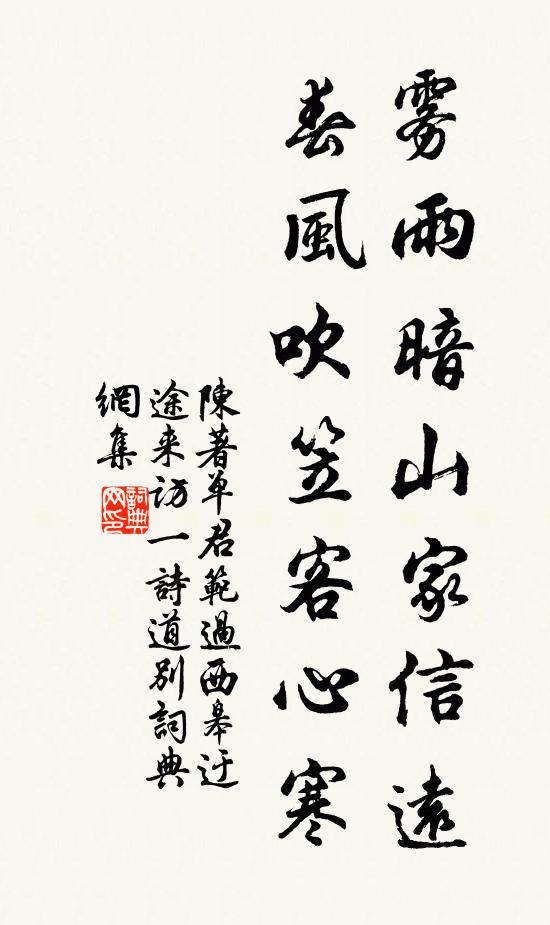 雾雨暗山家信遠
春風吹笠客心寒
陳著單君範過西皋迂
途来訪一詩道别詞典
網集
詞典
网印